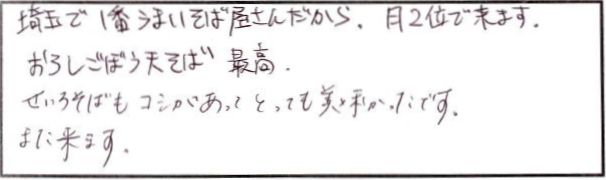 埼玉で1番うまいそば屋さんだから、月2位で来ます。
おろしごぼう天そば 最高。
せいろそばもコシがあってとっても美味かったです。
また来ます。